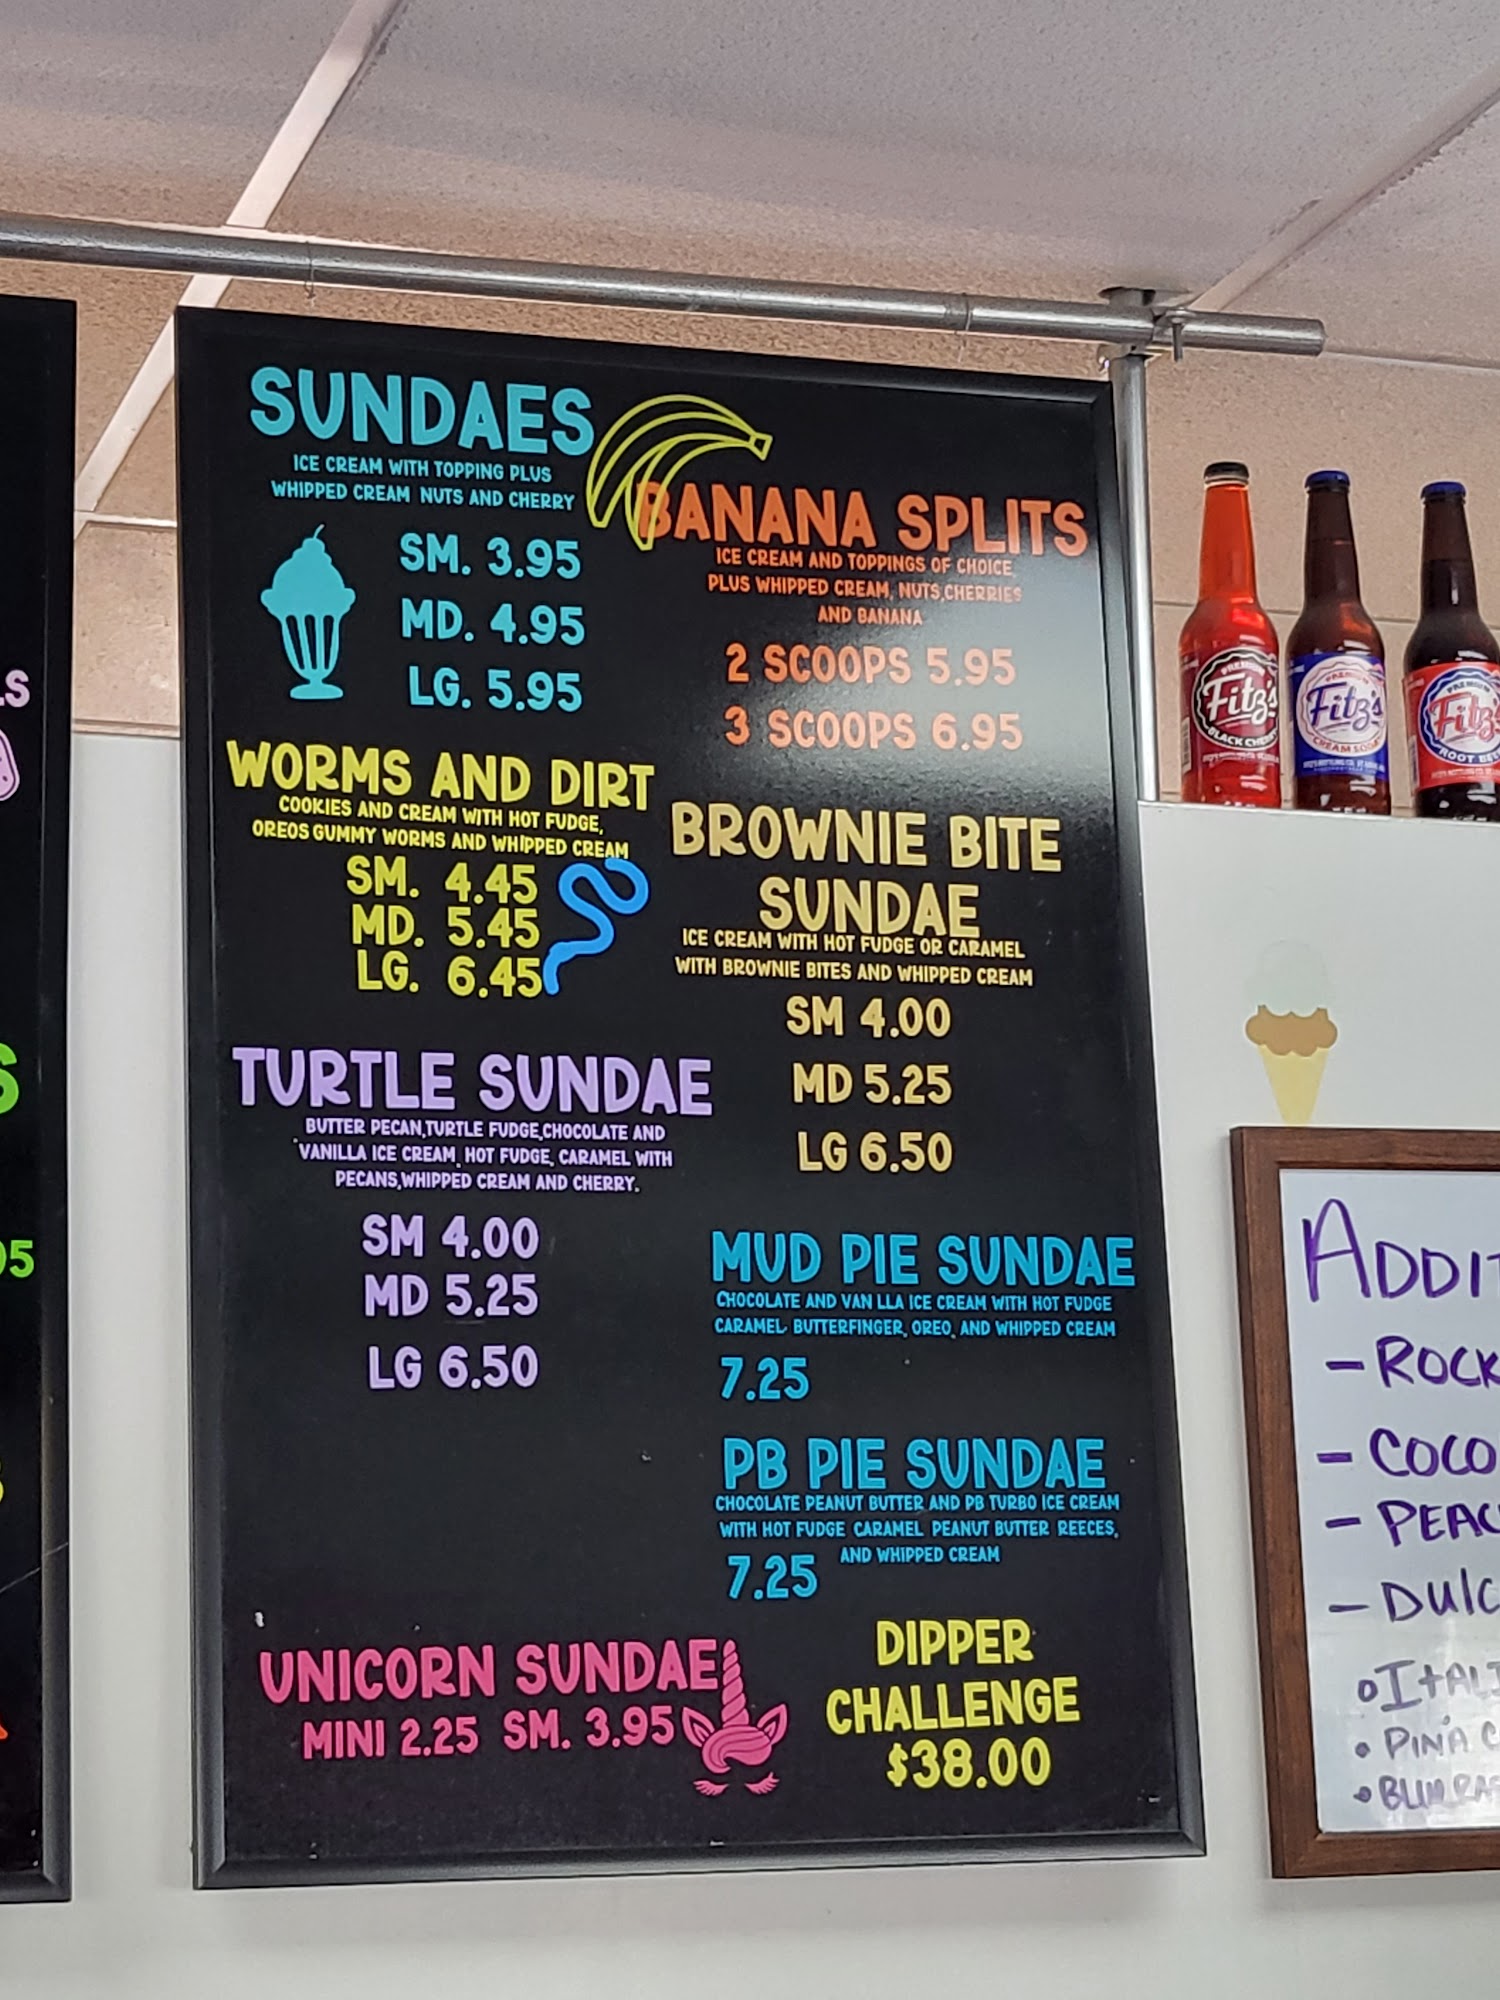 SUNDAES
ICE CREAM WITH TOPPING PLUS
WHIPPED CREAM NUTS AND CHERRY
SM. 3.95
MD. 4.95
LG. 5.95
BANANA SPLITS
ICE CREAM AND TOPPINGS OF CHOICE,
PLUS WHIPPED CREAM, NUTS,CHERRIES
AND BANANA
2 SCOOPS 5.95
3 SCOOPS 6.95
WORMS AND DIRT
COOKIES AND CREAM WITH HOT FUDGE,
OREOS GUMMY WORMS AND WHIPPED CREAM
SM. 4.45
MD. 5.45
LG. 6.45
BROWNIE BITE
SUNDAE
ICE CREAM WITH HOT FUDGE OR CARAMEL
WITH BROWNIE BITES AND WHIPPED CREAM
SM 4.00
MD 5.25
LG 6.50
TURTLE SUNDAE
BUTTER PECAN,TURTLE FUDGE,CHOCOLATE AND
VANILLA ICE CREAM, HOT FUDGE, CARAMEL WITH
PECANS,WHIPPED CREAM AND CHERRY.
SM 4.00
MD 5.25
LG 6.50
MUD PIE SUNDAE
CHOCOLATE AND VAN LLA ICE CREAM WITH HOT FUDGE
CARAMEL BUTTERFINGER, OREO, AND WHIPPED CREAM
7.25
PB PIE SUNDAE
CHOCOLATE PEANUT BUTTER AND PB TURBO ICE CREAM
WITH HOT FUDGE CARAMEL PEANUT BUTTER REECES,
AND WHIPPED CREAM
7.25
UNICORN SUNDAE
MINI 2.25 SM. 3.95
DIPPER
CHALLENGE
$38.00
LS
S
05
PREMIUM
Fitz's
BLACK CHERRY
PREMIUM
Fitz's
CREAM SODA
PREMIUM
Fitz's
ROOT BE
ADDIT
- ROCK
- COCO
- PEAC
- DULC
ITALI
• PINA C